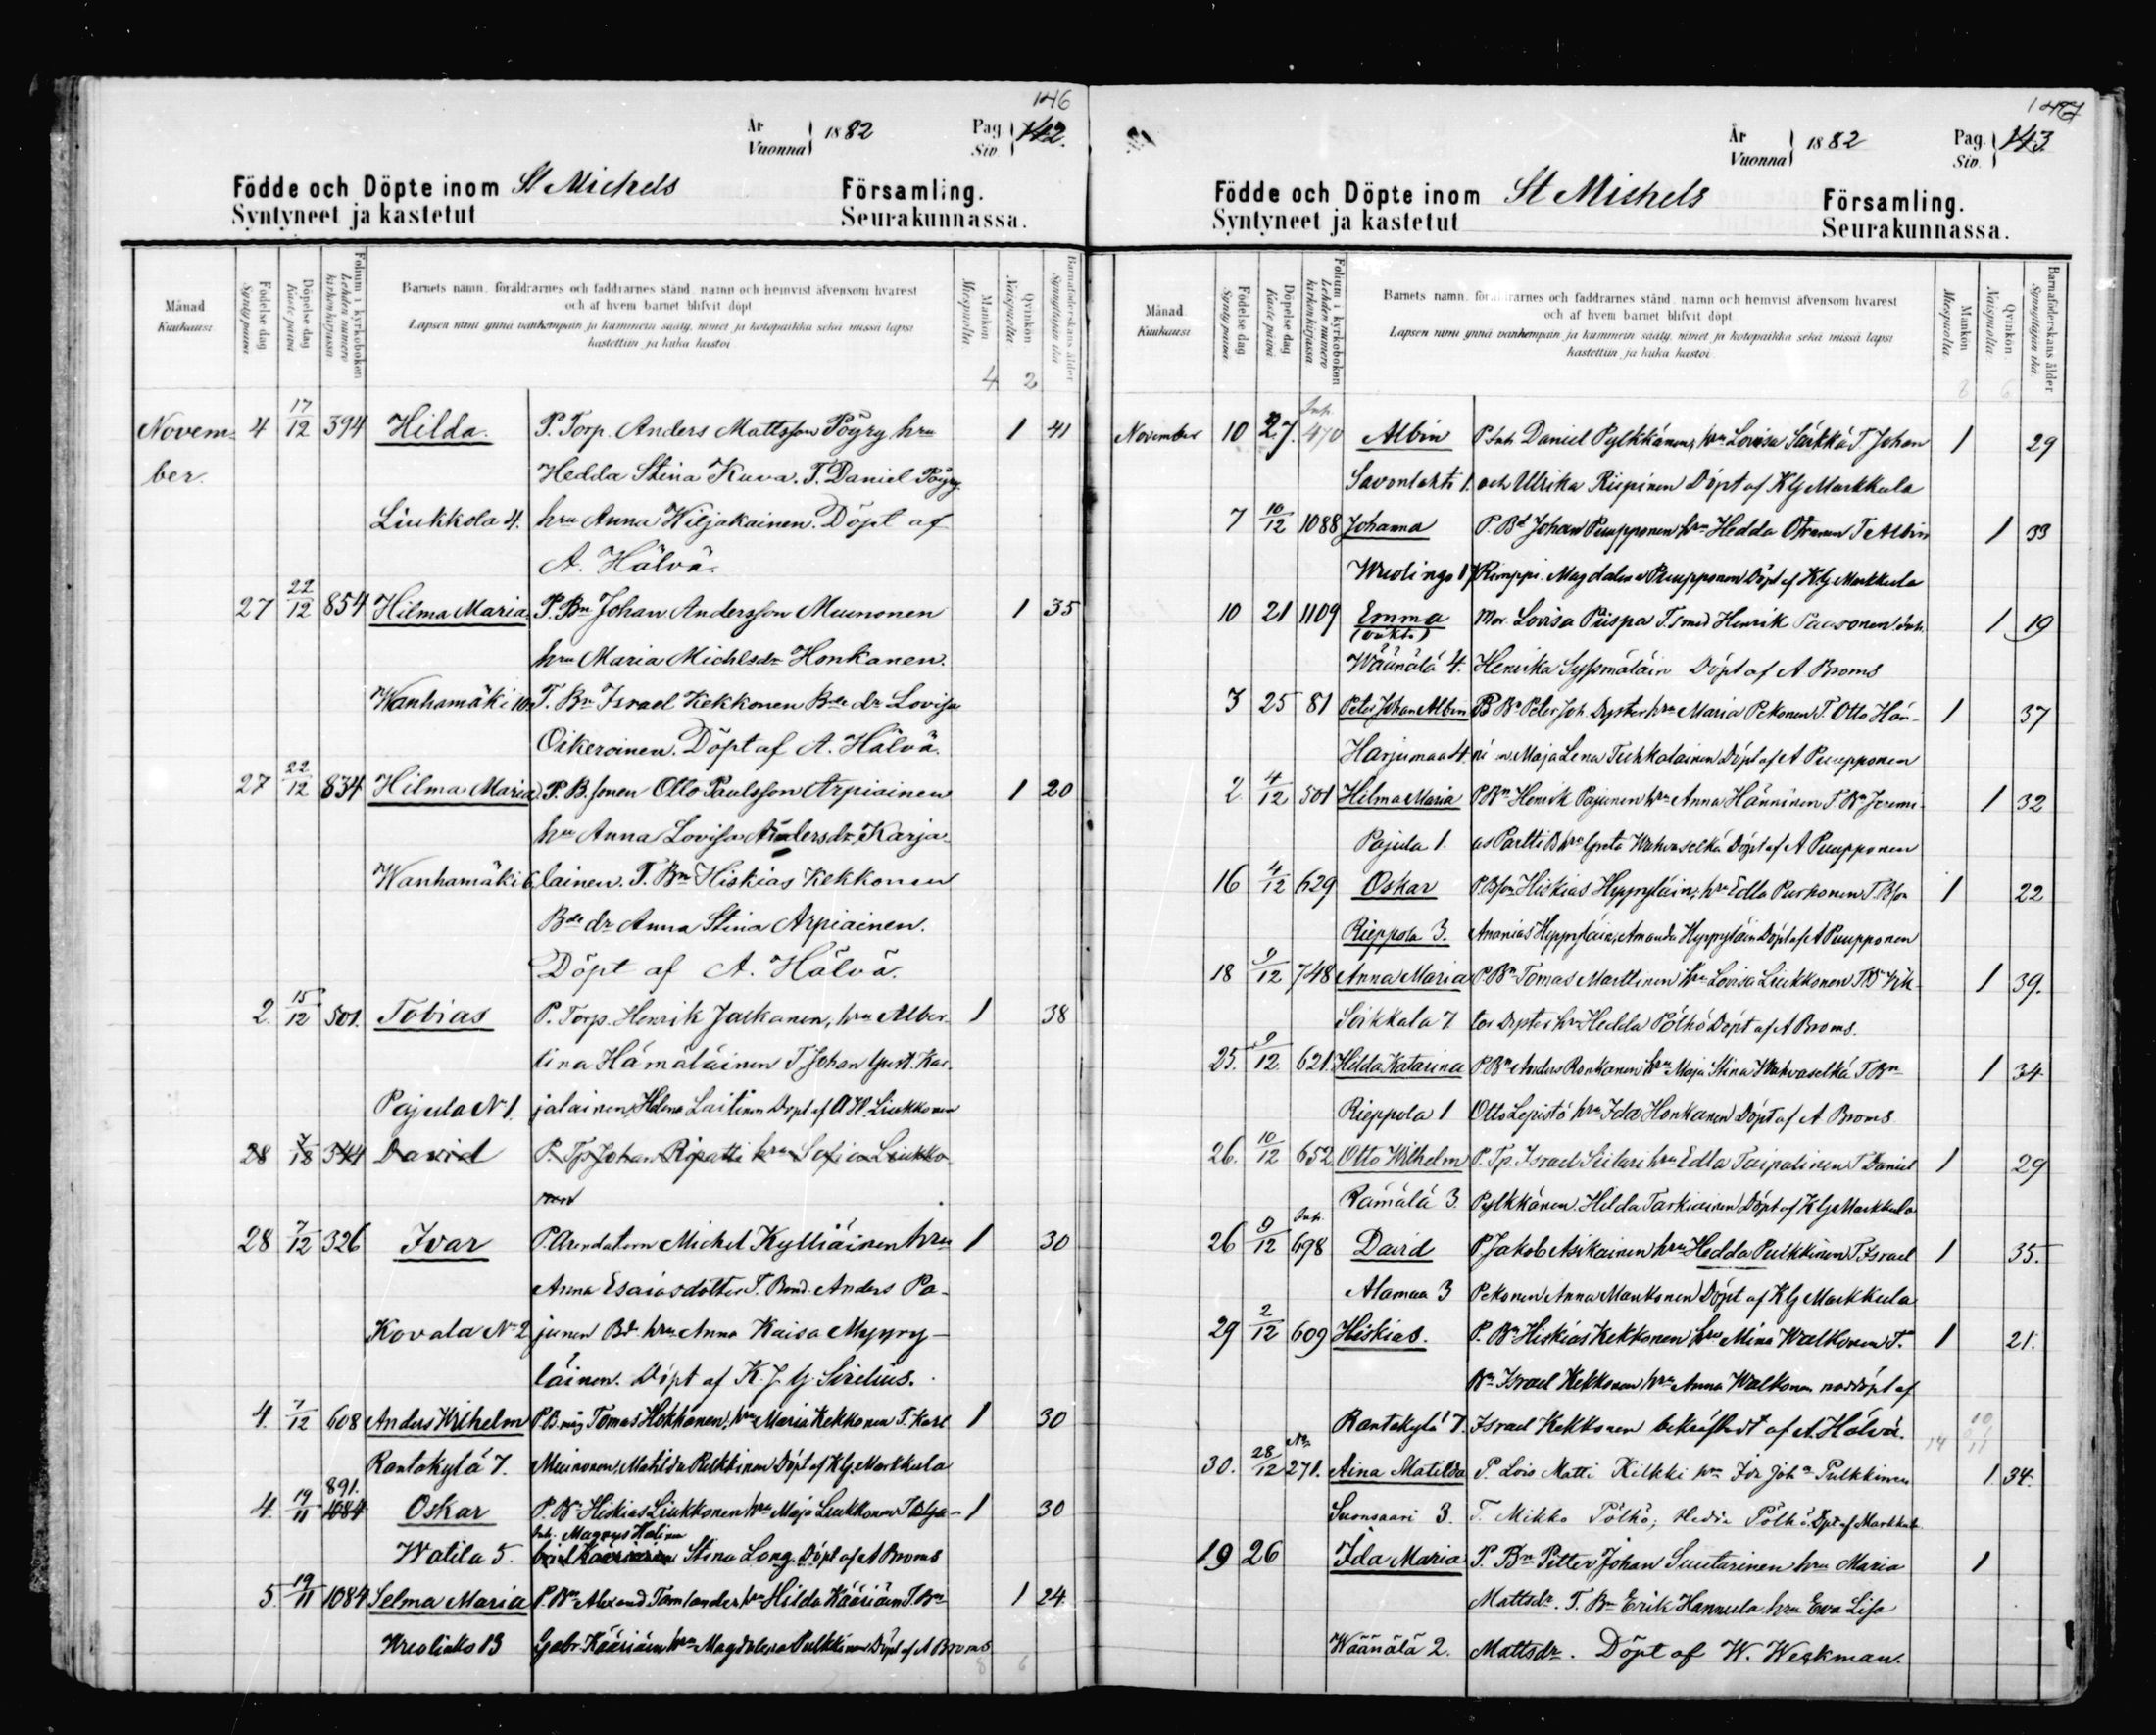 146
År
Vuonna
1882
Pag.
Siv.
142.
Födde och Döpte inom St Michels Församling.
Syntyneet ja kastetut Seurakunnassa.
Månad
Kuukausi
Födelse dag
Synty päivä
Döpelse dag
Kaste päivä
Folium i kyrkoboken
Lehden numero kirkonkirjassa
Barnets namn, föräldrarnes och faddrarnes stånd, namn och hemvist äfvensom hvarest
och af hvem barnet blifvit döpt
Lapsen nimi ynnä vanhempain ja kummein sääty, nimet ja kotopaikka sekä missä lapsi
kastettiin ja kuka kastoi
Mankön
Miespuolta
Qvinkön
Naispuolta
Barnaföderskans ålder
Synnyttäjän ikä
4 2
Novem- 4 17/12 394 Hilda. P. Torp. Anders Mattsson Pöyry hru 1 41
ber. Hedda Stina Kuva. T. Daniel Pöyry
Liukkola 4. hru Anna Wiljakainen. Döpt af
A. Hälvä.
27 22/12 854 Hilma Maria P. Bn Johan Andersson Muinonen 1 35
hru Maria Michelsdr Honkanen.
Wanhamäki 10 T. Bn Israel Kekkonen Bde dr Lovisa
Oikeroinen. Döpt af A. Hälvä.
27 22/12 834 Hilma Maria P. B. sonen Otto Paulsson Arpiainen 1 20
hru Anna Lovisa Andersdr Karja-
Wanhamäki 6 lainen. T. Bn Hiskias Kekkonen
Bde dr Anna Stina Arpiainen.
Döpt af A. Hälvä.
2. 15/12 501. Tobias P. Torp. Henrik Jaskanen, hru Alber- 1 38
tina Hämäläinen T Johan Gust. Kar-
Pajula No 1. jalainen, Helena Laitinen Döpt af A W. Liukkonen
28 7/12 344 David P. Tp Johan Ripatti hru Sofia Liukko-
nen
28 7/12 326 Ivar P. Arendatorn Michel Kylliäinen hru 1 30
Anna Esaiasdotter T. Bond. Anders Pa-
Kovala No 2 junen Bd. hru Anna Kaisa Myyry-
läinen. Döpt af K. J. G. Sirelius.
4. 7/12 608 Anders Wilhelm P. B. måg Tomas Hokkanen, hru Maria Kekkonen T. Karl 1 30
Rantakylä 7. Muinonen, Matilda Pulkkinen Döpt af Klg. Markkula
891.
4. 19/11 1084 Oskar P. Bn Hiskias Liukkonen hru Maja Liukkonen 1 30
Inh. Magnus Halinen
Watila 5. Stina Long. Döpt af A Broms
5. 19/11 1084 Selma Maria P. Bn Alexand. Törnlander hru Hilda Kääriäin T. Bn 1 24
13 Gabr. Kääriäin hru Magdalena Pulkkinen Döpt af A Broms
8 6
147
År
Vuonna
1882
Pag.
Siv.
143.
Födde och Döpte inom St Michels Församling.
Syntyneet ja kastetut Seurakunnassa.
Månad
Kuukausi
Födelse dag
Synty päivä
Döpelse dag
Kaste päivä
Folium i kyrkoboken
Lehden numero kirkonkirjassa
Barnets namn, föräldrarnes och faddrarnes stånd, namn och hemvist äfvensom hvarest
och af hvem barnet blifvit döpt
Lapsen nimi ynnä vanhempain ja kummein sääty, nimet ja kotopaikka sekä missä lapsi
kastettiin ja kuka kastoi
Mankön
Miespuolta
Qvinkön
Naispuolta
Barnaföderskans ålder
Synnyttäjän ikä
8 6
Inh.
November 10 27. 470 Albin P Inh Daniel Pylkkänen, hru Lovisa Särkkä T Johan 1 29
Savonlahti 1. och Ulrika Riepinen Döpt af Klg Markkula
7 10/12 1088 Johanna P. Bd Johan Puupponen hru Hedda Otranen T Albin 1 33
17 Kemppi. Magdalena Puupponen Döpt af Klg Markkula
10 21 1109 Emma Mor. Lovisa Piispa T. smed Henrik Paasonen Inh. 1 19
(oäkta)
Wäänälä 4. Henrika Syssmäläin Döpt af A Broms
3 25 81 Peter Johan Albin P Bn Peter Joh. Dyster hru Maria Pekonen T. Otto Hän- 1 37
Harjumaa 4. ni Maja Lena Tuhkalainen Döpt af A Puupponen
2 4/12 501 Hilma Maria P Bn Henrik Pajunen hru Anna Hänninen T. Bn Jeremi- 1 32
Pajula 1. as Partti hru Greta Wahvaselkä Döpt af A Puupponen
16 4/12 629 Oskar P. Bson Hiskias Hyyryläin, hru Edla Purhonen T. Bson 1 22
Rieppola 3. Ananias Hyyryläin, Amanda Hyyryläin Döpt af A Puupponen
18 9/12 748 Anna Maria P. Bn Tomas Marttinen hru Lovisa Liukkonen T Bn Vik- 1 39.
Soikkala 7 tor Dyster hru Hedda Pöllö Döpt af A Broms.
25. 9/12 621. Hilda Katarina P Bn Anders Ronkanen hru Maja Stina Wahvaselkä T Bn 1 34
Rieppola 1 Otto Lepistö hru Ida Honkanen Döpt af A Broms.
26. 10/12 652 Otto Wilhelm P. Tp. Israel Siitari hru Edla Taipalinen T Daniel 1 29
Rämälä 3 Pylkkänen. Hilda Tarkiainen Döpt af Klg Markkula
Inh.
26 9/12 698 David P Jakob Asikainen hru Hedda Pulkkinen T Israel 1 35.
Alamaa 3 Pekonen Anna Mankonen Döpt af Klg Markkula
29 2/12 609 Hiskias. P. Bn Hiskias Kekkonen hru Mina Walkonen T. 1 21.
Bn Israel Kekkonen hru Anna Walkonen nöddöpt af
Rantakylä 7. Israel Kekkonen bekräftadt af A. Hälvä. 14 10 11
30. 28/12 271. Aina Matilda P. Lois Matti Kilkki hru Ida Joha Pulkkinen 1. 34.
Suonsaari 3. T. Mikko Pöllö; Hedda Pöllö. Dpt af Markkula
19 26 Ida Maria P. Bn Petter Johan Suutarinen hru Maria 1
Mattsdr. T. Bn Erik Hannula hru Eva Lisa
Wäänälä 2. Mattsdr. Döpt af W. Weckman.